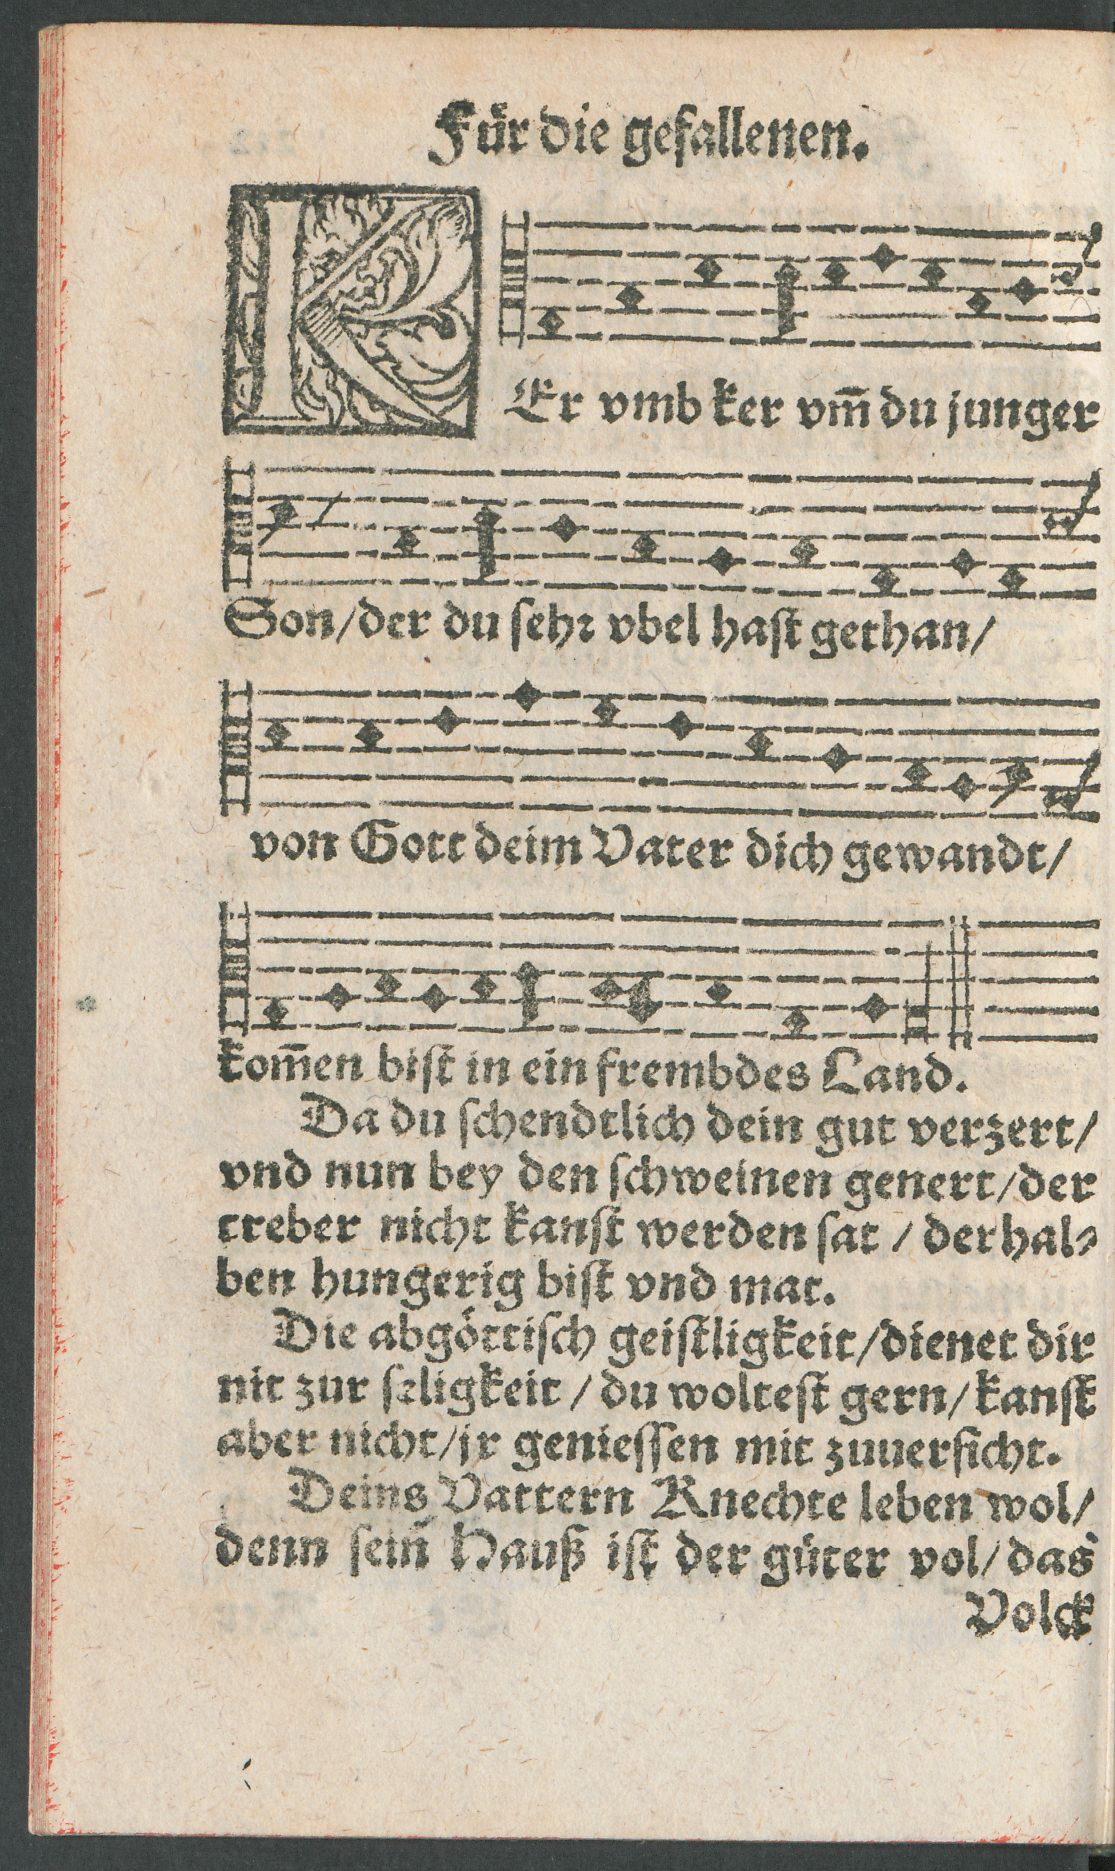 Für die gefallenen.
KEr vmb ker vm̄ du junger
Son/der du sehr vbel hast gethan/
von Gott deim Vater dich gewandt/
kom̄en bist in ein frembdes Land.
Da du schendtlich dein gut verzert/
vnd nun bey den schweinen genert/der
treber nicht kanst werden sat / derhal-
ben hungerig bist vnd mat.
Die abgöttisch geistligkeit/dienet dir
nit zur seligkeit / du woltest gern/ kanst
aber nicht/jr geniessen mit zuuersicht.
Deins Vattern Knechte leben wol/
denn sein̄ Hauß ist der güter vol/ das
Volck